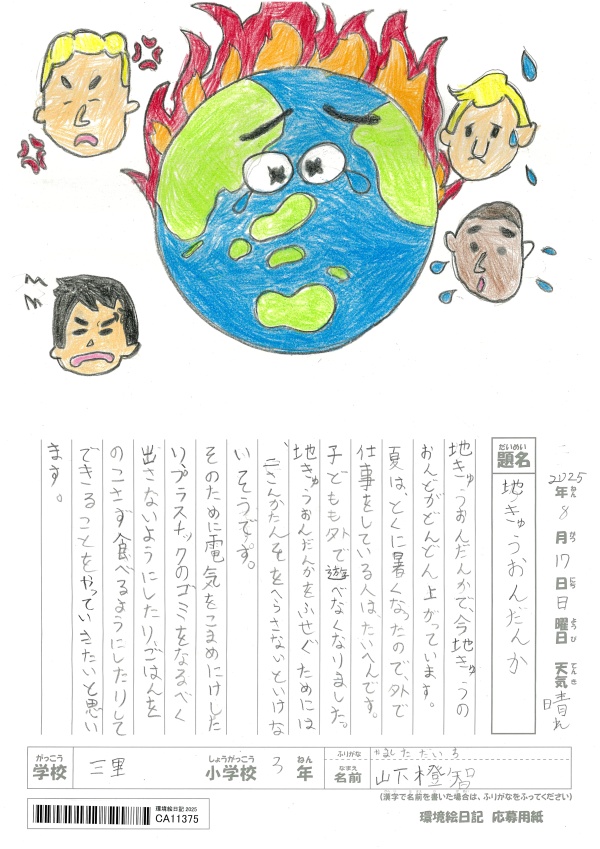 2025年ねん8月がつ17日にち日曜日ようび 天気てんき晴れ
だいめい
題名
地きゅうおんだんか
地きゅうおんだんかで、今地きゅうの
おんどがどんどん上がっています。
夏は、とくに暑くなったので、外で
仕事をしている人は、たいへんです。
子どもも外で遊べなくなりました。
地きゅうおんだんかをふせぐためには
、二さんかたんそをへらさないといけな
いそうです。
そのために電気をこまめにけした
り、プラスチックのゴミをなるべく
出さないようにしたり、ごはんを
のこさず食べるようにしたりして
できることをやっていきたいと思い
ます。
がっこう
学校
三里
しょうがっこう
小学校
3
ねん
年
ふりがな
やました だいち
なまえ
名前
山下橙智
(漢字で名前を書いた場合は、ふりがなをふってください)
環境絵日記2025
CA11375
環境絵日記 応募用紙